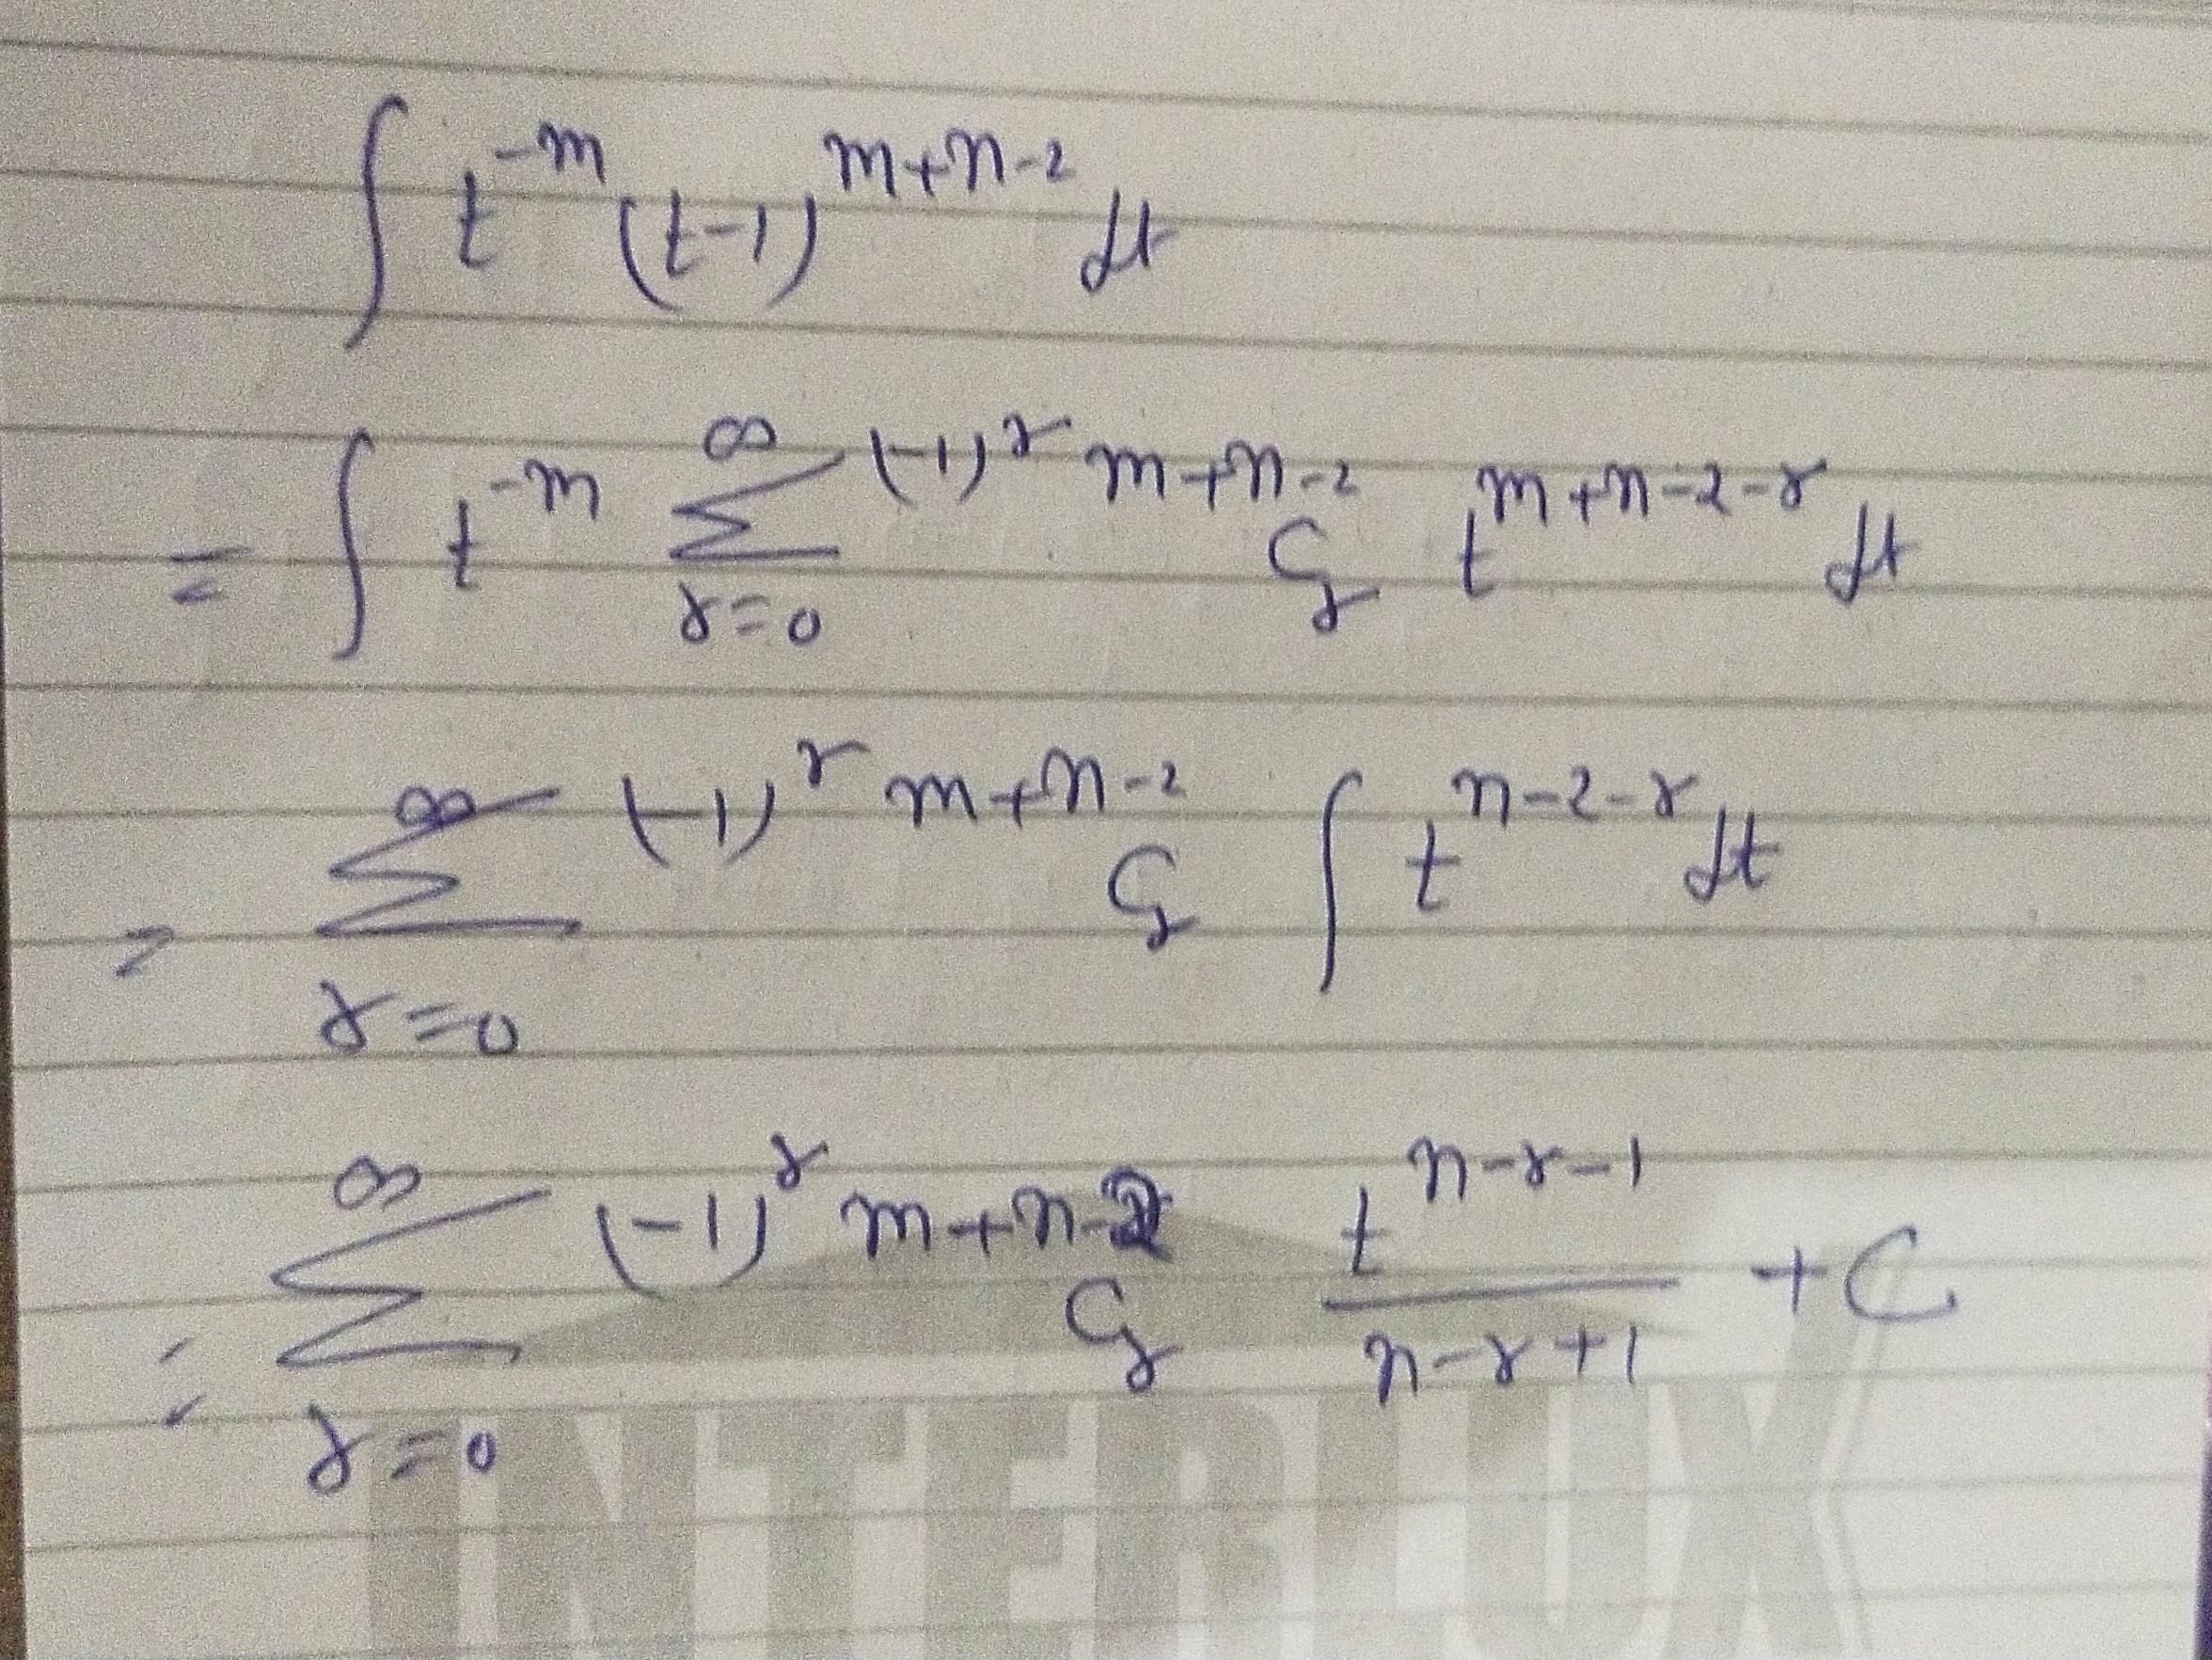 ∫ t^{-m} (t-1)^{m+n-2} dt
= ∫ t^{-m} ∑_{r=0}^{∞} (-1)^r ^{m+n-2}C_r t^{m+n-2-r} dt
= ∑_{r=0}^{∞} (-1)^r ^{m+n-2}C_r ∫ t^{n-2-r} dt
= ∑_{r=0}^{∞} (-1)^r ^{m+n-2}C_r \frac{t^{n-r-1}}{n-r+1} + C
INTERLUX